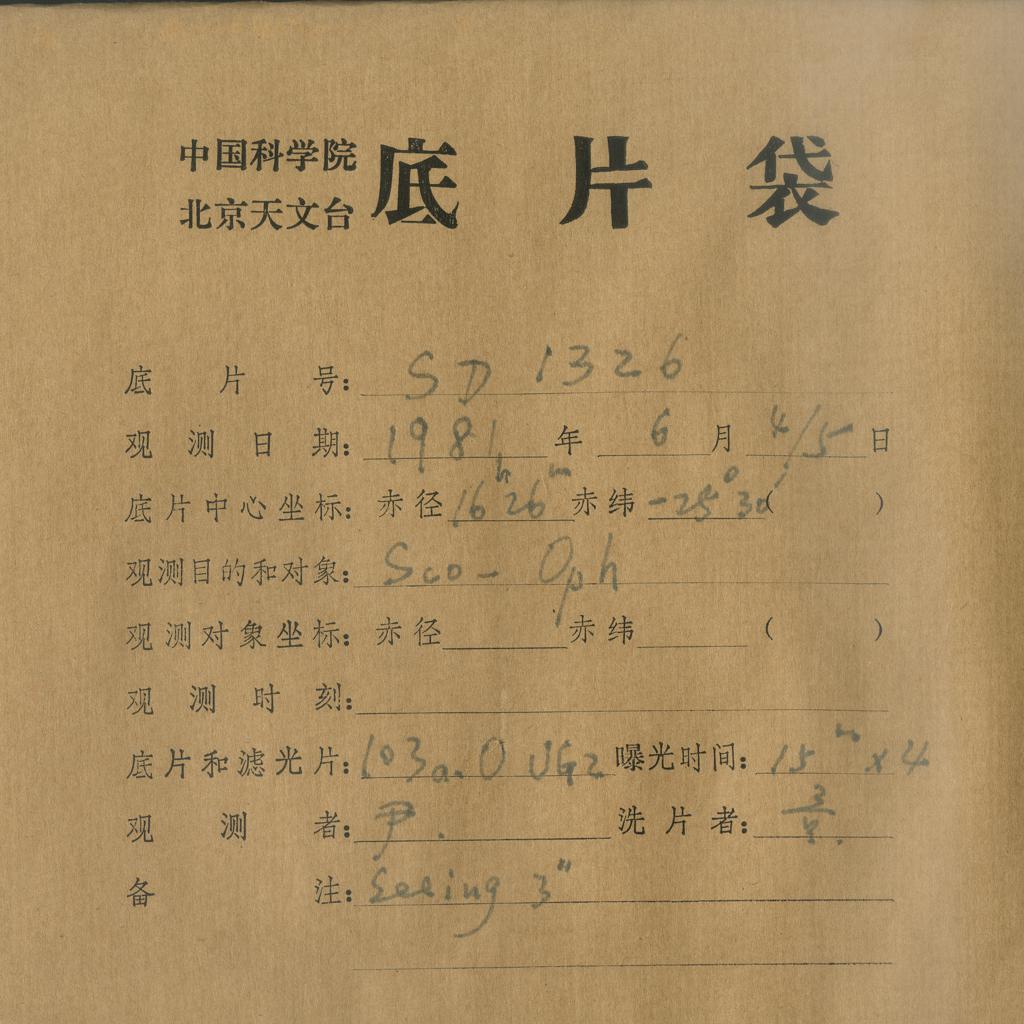 中国科学院
北京天文台
底片袋
底片号： SD 1326
观测日期： 1981 年 6 月 4/5 日
底片中心坐标： 赤径 16h26m 赤纬 -25°30′ ( )
观测目的和对象： Sco - Oph
观测对象坐标： 赤径 赤纬 ( )
观测时刻：
底片和滤光片： 103a.O UG2 曝光时间： 15m x4
观测者： 尹. 洗片者：
备注： Seeing 3″